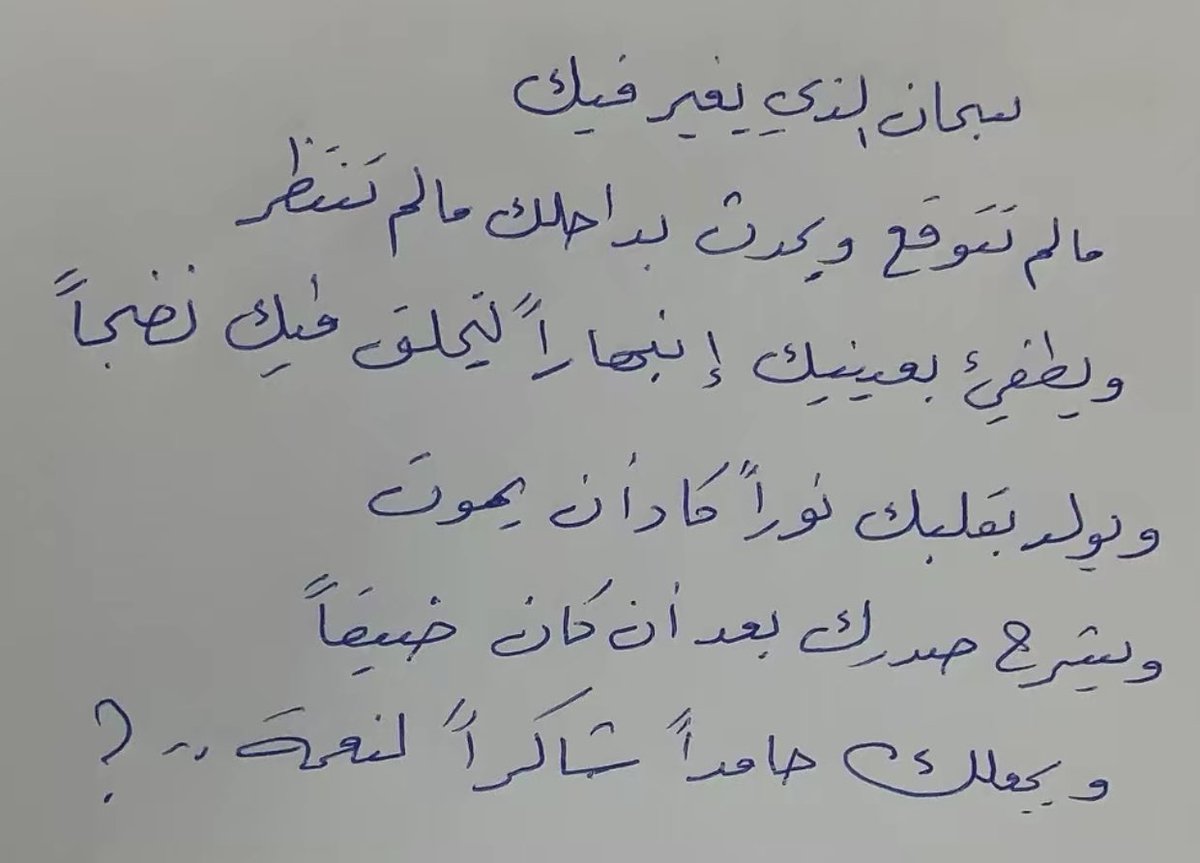 سبحان الذي يغير فيك
مالم تَتَوقع ويحدث بداخلك مالم تَنتَظر
ويطفئ بعينيك إنبهاراً ليخلق فيك نضجاً
ويولد بقلبك نوراً كاد أن يموت
ويشرح صدرك بعد أن كان ضيقاً
ويجعلك حامداً شاكراً لنعمة ..؟